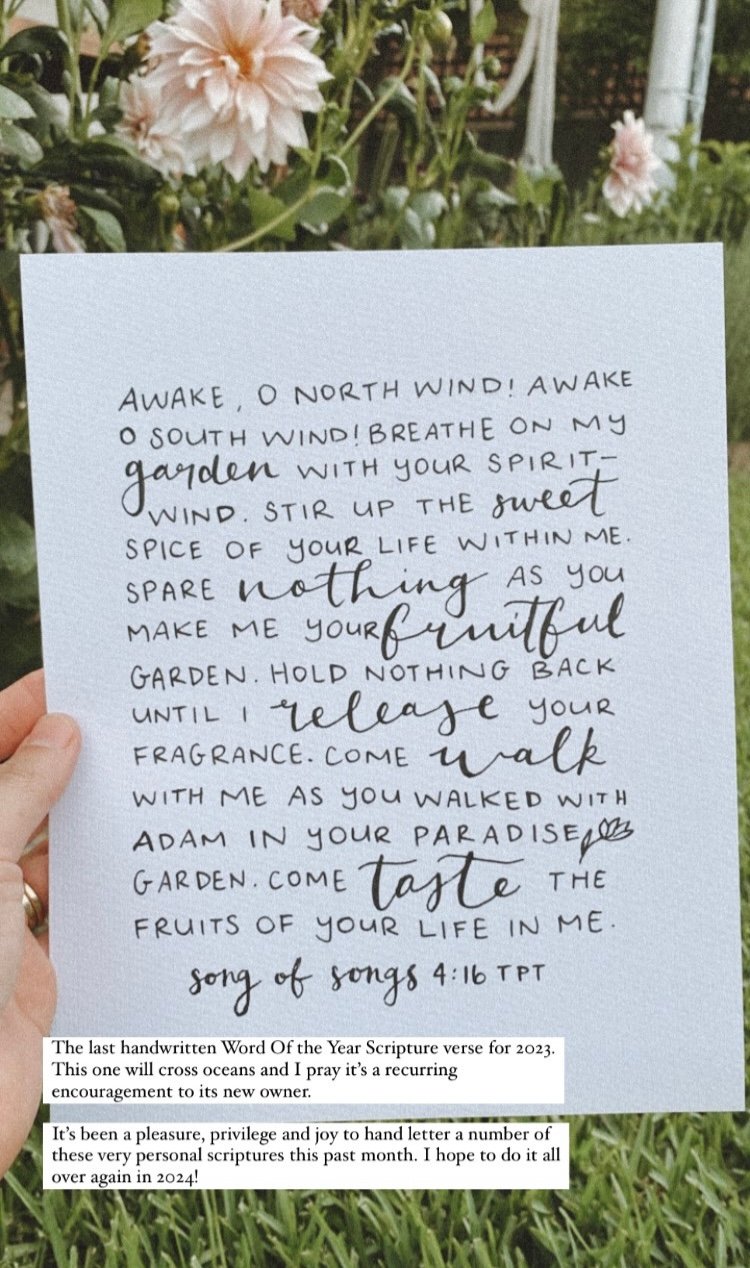 AWAKE, O NORTH WIND! AWAKE
O SOUTH WIND! BREATHE ON MY
garden WITH YOUR SPIRIT-
WIND. STIR UP THE sweet
SPICE OF YOUR LIFE WITHIN ME.
SPARE nothing AS YOU
MAKE ME YOUR fruitful
GARDEN. HOLD NOTHING BACK
UNTIL I release YOUR
FRAGRANCE. COME walk
WITH ME AS YOU WALKED WITH
ADAM IN YOUR PARADISE
GARDEN. COME taste THE
FRUITS OF YOUR LIFE IN ME.
song of songs 4:16 TPT
The last handwritten Word Of the Year Scripture verse for 2023.
This one will cross oceans and I pray it's a recurring
encouragement to its new owner.
It's been a pleasure, privilege and joy to hand letter a number of
these very personal scriptures this past month. I hope to do it all
over again in 2024!